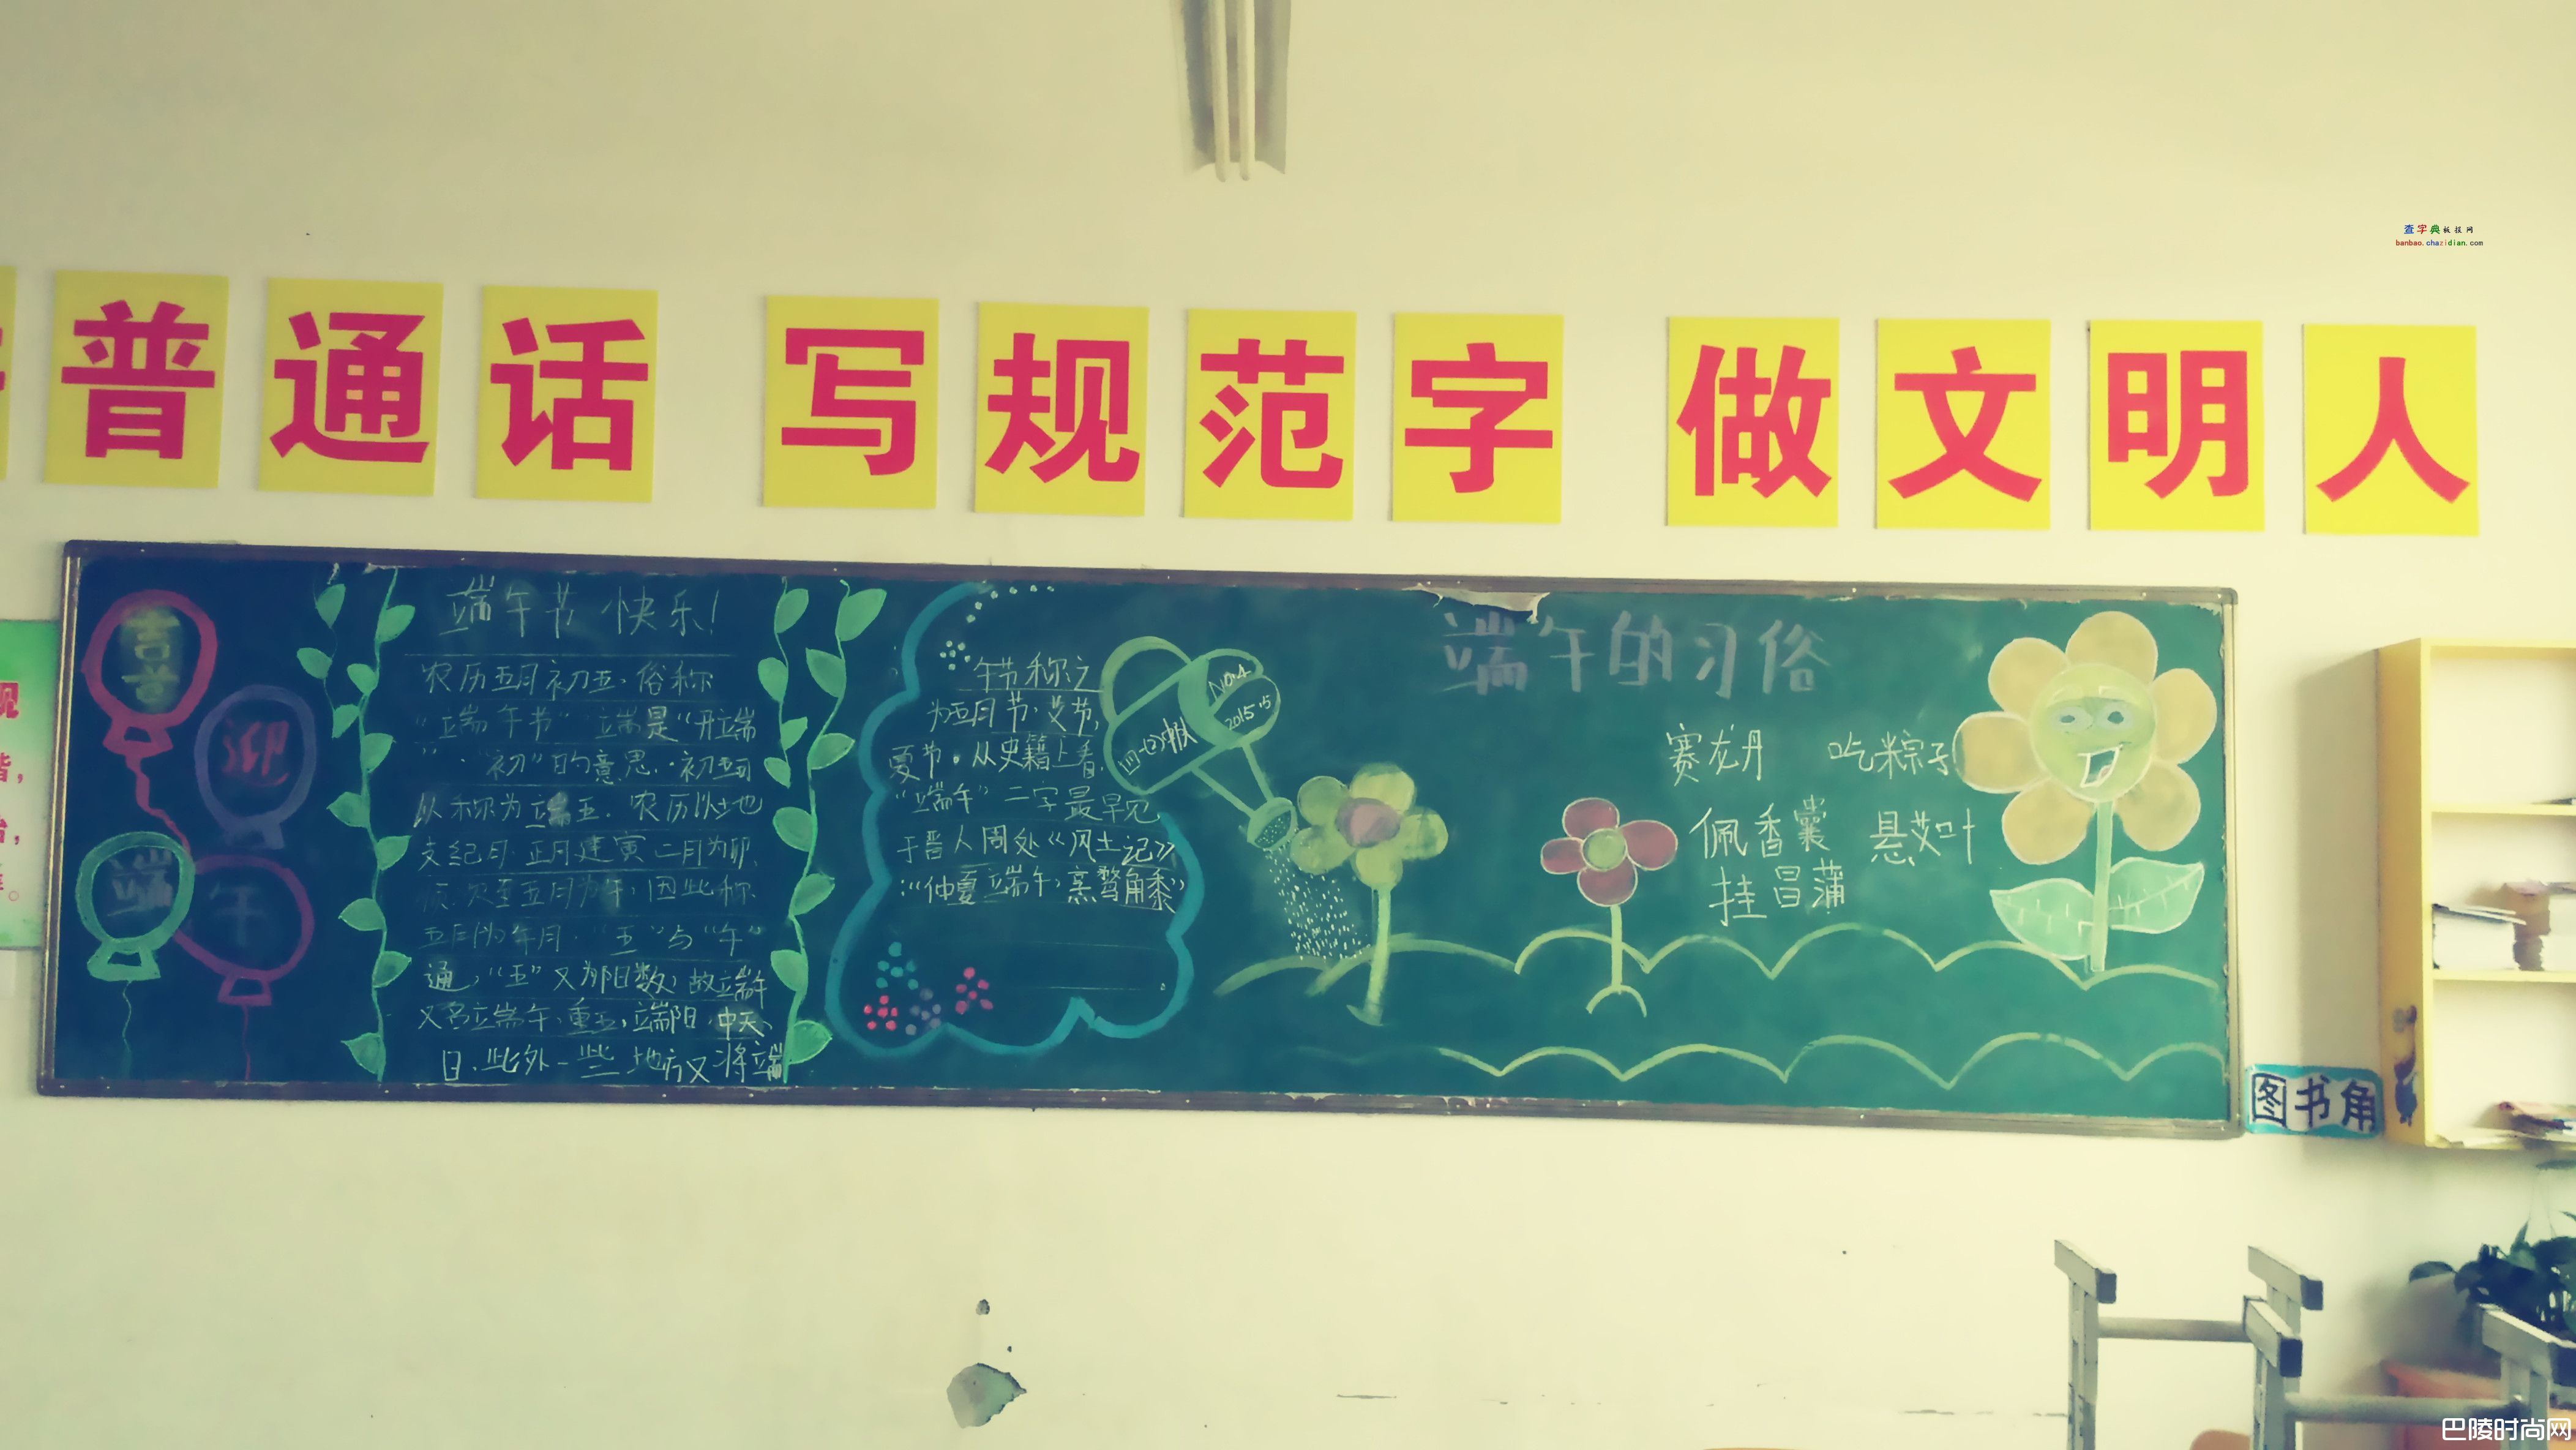 查字典板报网
banbao.chazidian.com
普通话 写规范字 做文明人
喜
迎
端
午
端午节快乐!
农历五月初五,俗称
“端午节”端是“开端
”、“初”的意思.初五可
以称为端五.农历以地
支纪月.正月建寅二月为卯.
顺次至五月为午,因此称
五月为午月,“五”与“午”
通,“五”又为阳数,故端午
又名端午、重五,端阳、中天、
日.此外一些地方又将端
午节称之
为五月节、艾节,
夏节。从史籍上看,
“端午”二字最早见
于晋人周处《风土记》
:“仲夏端午,烹鹜角黍”
NO.4
2015.5
端午的习俗
赛龙丹 吃粽子
佩香囊 悬艾叶
挂昌蒲
图书角
巴陵时尚网